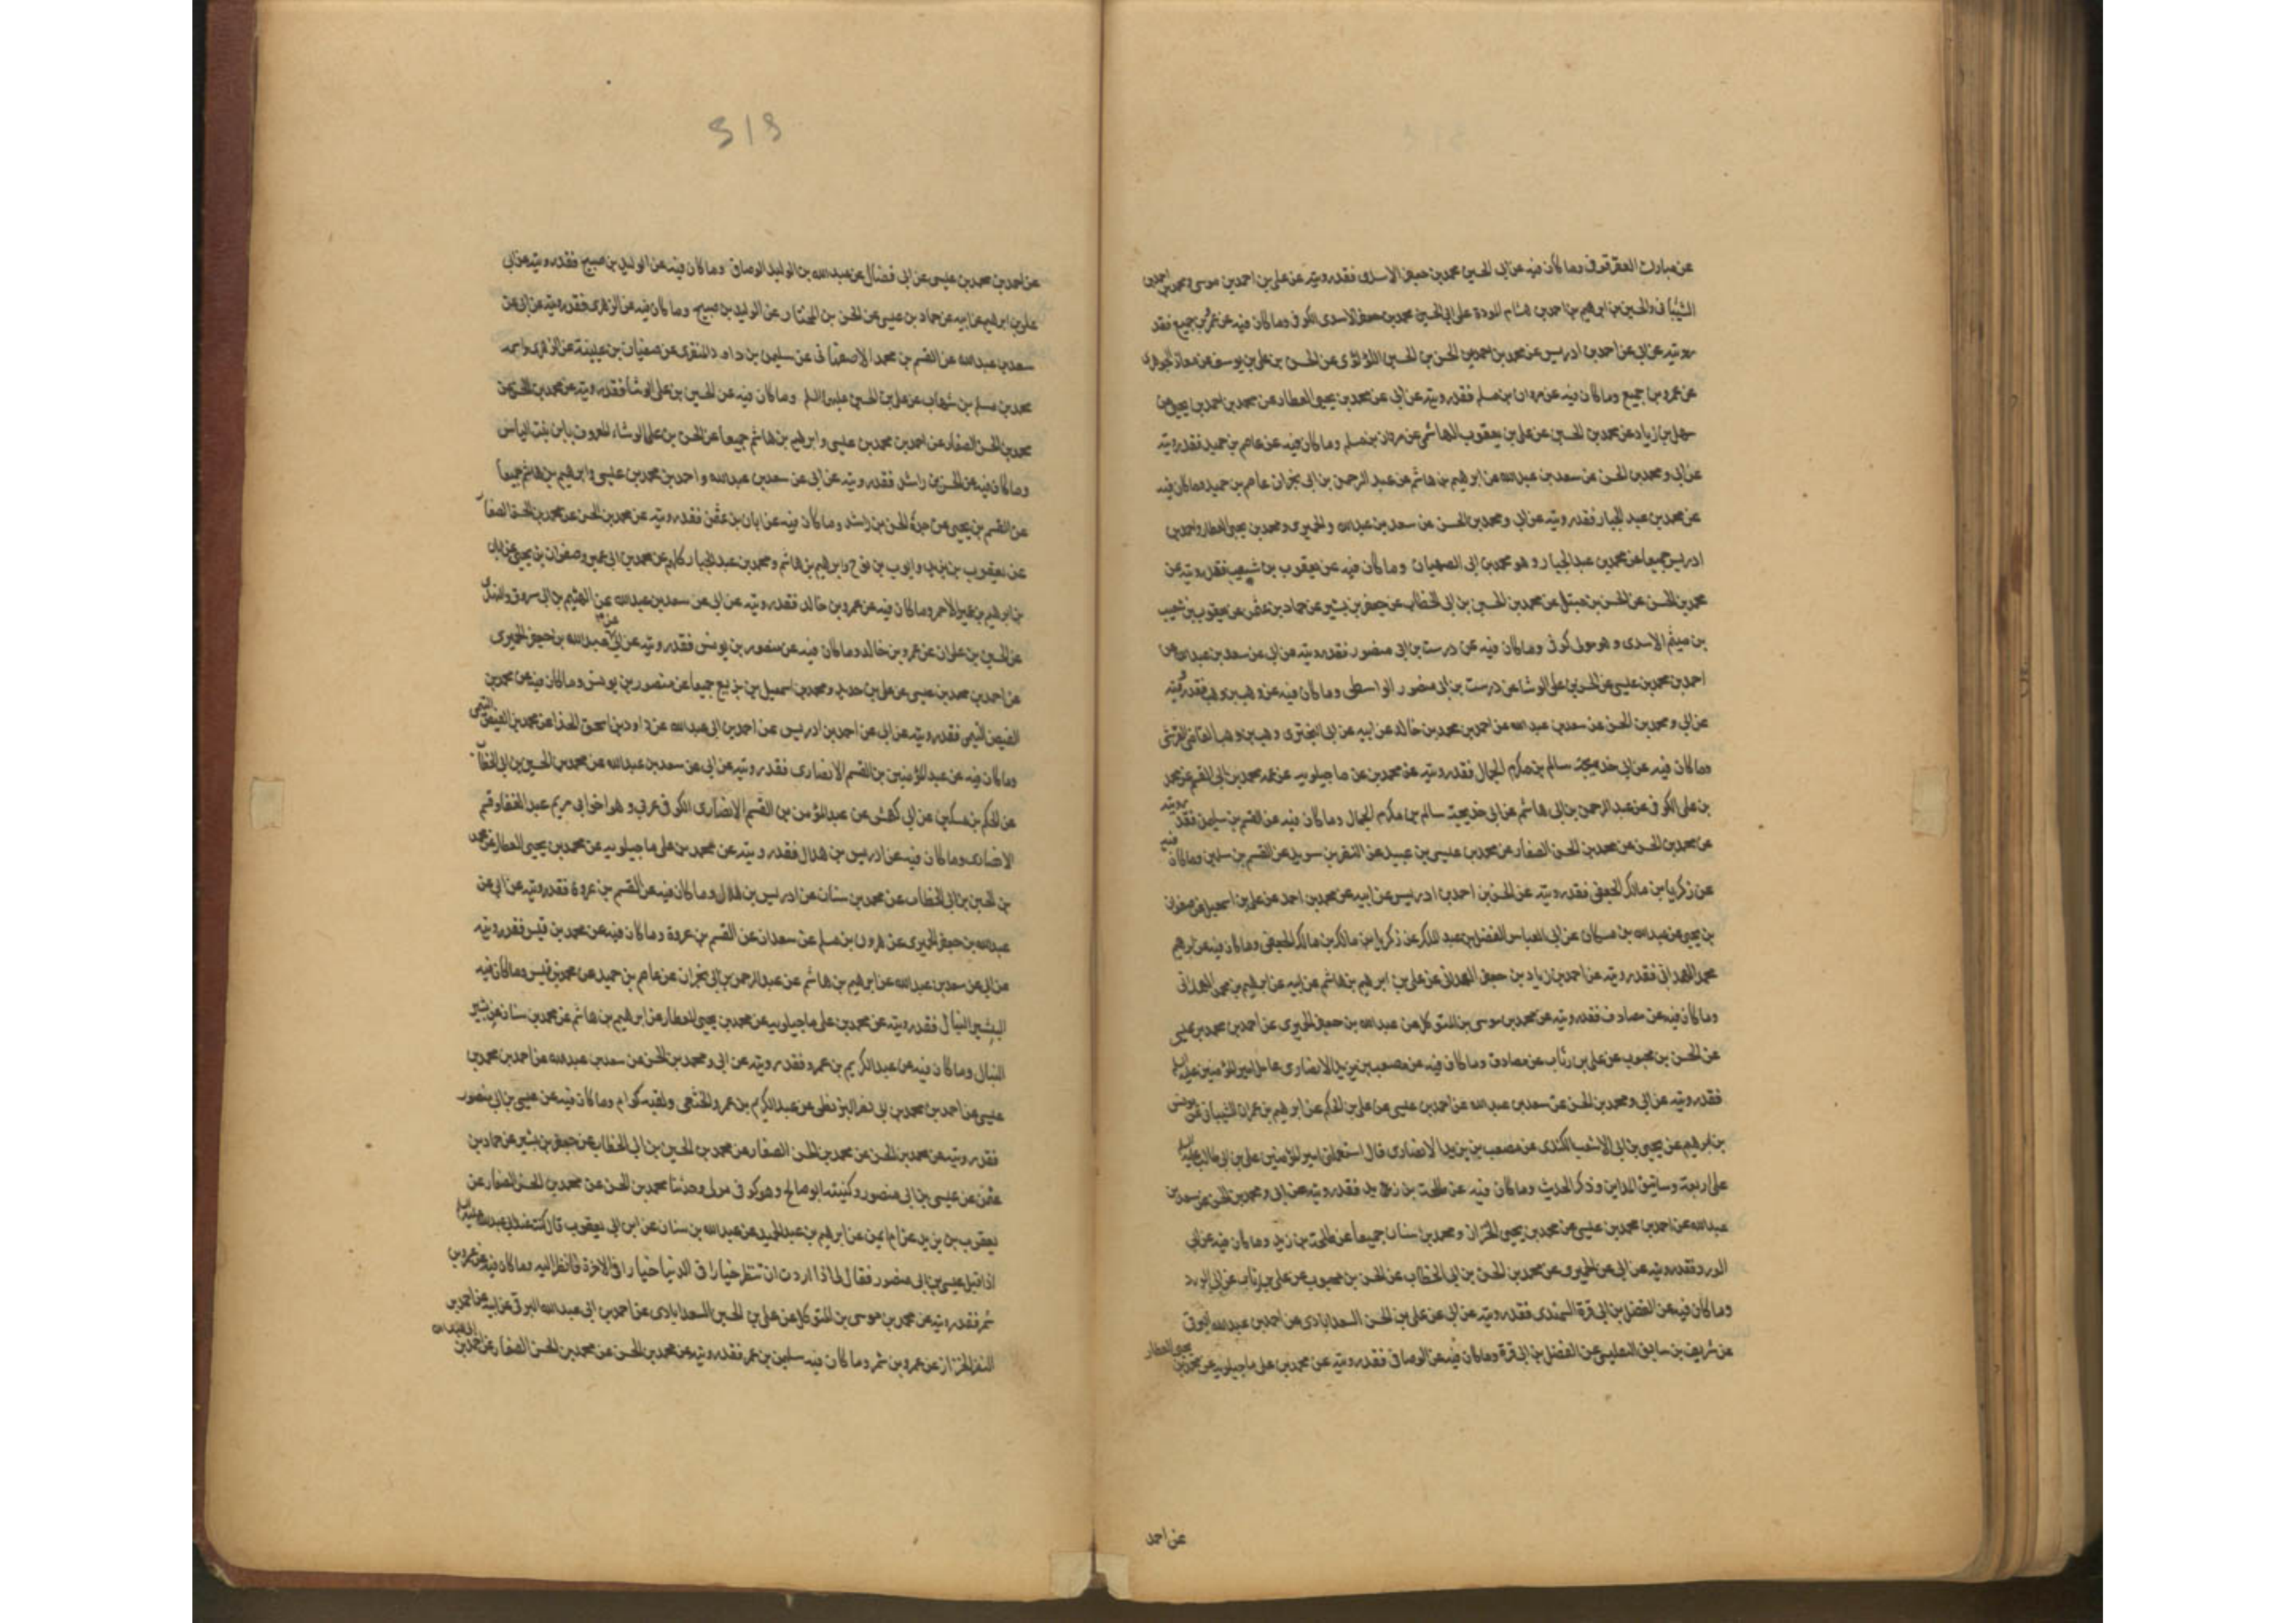 عن مبارك العقرقوفى وما كان فيه عن ابى الحسين محمد بن جعفر الاسدى فقد رويته عن على بن احمد بن موسى ومحمد بن احمد بن
الشيبانى والحسين بن ابرهيم بن احمد بن هشام المودة على ابى الحسين محمد بن جعفر الاسدى الكوفى وما كان فيه عن عمرو بن جميع فقد
رويته عن ابى عن احمد بن ادريس عن محمد بن احمد بن الحسن بن الحسين اللؤلؤى عن الحسن بن على بن يوسف عن معاذ الجوهرى
عن عمرو بن جميع وما كان فيه عن مروان بن مسلم فقد رويته عن ابى عن محمد بن يحيى العطار عن محمد بن احمد بن يحيى عن
سهل بن زياد عن محمد بن الحسين عن على بن يعقوب الهاشمى عن مروان بن مسلم وما كان فيه عن عاصم بن حميد فقد رويته
عن ابى ومحمد بن الحسن عن سعد بن عبدالله عن ابرهيم بن هاشم عن عبد الرحمن بن ابى نجران عاصم بن حميد وما كان فيه
عن محمد بن عبد الجبار فقد رويته عن ابى ومحمد بن الحسن عن سعد بن عبدالله والحميرى ومحمد بن يحيى العطار واحمد بن
ادريس جميعا عن محمد بن عبد الجبار وهو محمد بن ابى الصهبان وما كان فيه عن يعقوب بن شعيب فقد رويته عن
محمد بن الحسن عن الحسن بن متيل عن محمد بن الحسين بن ابى الخطاب عن جعفر بن بشير عن حماد بن عثمن عن يعقوب بن شعيب
بن ميثم الاسدى وهو مولى كوفى وما كان فيه عن درست بن ابى منصور فقد رويته عن ابى عن سعد بن عبدالله عن
احمد بن محمد بن عيسى عن الحسن بن على الوشا عن درست بن ابى منصور الواسطى وما كان فيه عن وهب بن وهب فقد رويته
عن ابى ومحمد بن الحسن عن سعد بن عبدالله عن احمد بن محمد بن خالد عن ابيه عن ابى البخترى وهب بن وهب القاضى القرشى
وما كان فيه عن ابى خديجة سالم بن مكرم الجمال فقد رويته عن محمد بن على ماجيلويه عن عمه محمد بن ابى القسم عن محمد
بن على الكوفى عن عبد الرحمن بن ابى هاشم عن ابى خديجة سالم بن مكرم الجمال وما كان فيه عن القسم بن سليمن فقد رويته
عن محمد بن الحسن عن محمد بن الحسن الصفار عن محمد بن عيسى بن عبيد عن النضر بن سويد عن القسم بن سليمن وما كان فيه
عن زكريا بن مالك الجعفى فقد رويته عن الحسين بن احمد بن ادريس عن ابيه عن محمد بن احمد عن على بن اسمعيل عن صفوان
بن يحيى عن عبدالله بن مسكان عن ابى العباس الفضل بن عبد الملك عن زكريا بن مالك بن مالك الجعفى وما كان فيه عن ابرهيم
محمد الهمدانى فقد رويته عن احمد بن زياد بن جعفر الهمدانى عن على بن ابرهيم بن هاشم عن ابيه عن ابرهيم بن محمد الهمدانى
وما كان فيه عن مصادف فقد رويته عن محمد بن موسى بن المتوكل عن عبدالله بن جعفر الحميرى عن احمد بن محمد بن عيسى
عن الحسن بن محبوب عن على بن رئاب عن مصادف وما كان فيه عن مصعب بن يزيد الانصارى عامل امير المؤمنين عليه السلم
فقد رويته عن ابى ومحمد بن الحسن عن سعد بن عبدالله عن احمد بن عيسى عن على بن الحكم عن ابرهيم بن عمران الشيبانى عن يونس
بن ابرهيم عن يحيى بن ابى الاشعث الكندى عن مصعب بن يزيد الانصارى قال استعملنى امير المؤمنين على بن ابى طالب عليه السلم
على اربعة رساتيق المداين وذكر الحديث وما كان فيه عن طلحة بن زيد فقد رويته عن ابى ومحمد بن الحسن عن سعد بن
عبدالله عن احمد بن محمد بن عيسى عن محمد بن يحيى الخزاز ومحمد بن سنان جميعا عن طلحة بن زيد وما كان فيه عن ابى
الورد فقد رويته عن ابى عن الحميرى عن محمد بن الحسين بن ابى الخطاب عن الحسن بن محبوب عن على بن رئاب عن ابى الورد
وما كان فيه عن الفضل بن ابى قرة السمندى فقد رويته عن ابى عن على بن الحسن السعدابادى عن احمد بن عبدالله البرقى
عن شريف بن سابق التفليسى عن الفضل بن ابى قرة وما كان فيه عن الوصافى فقد رويته عن محمد بن على ماجيلويه عن محمد بن يحيى العطار
عن احمد
عن احمد بن محمد بن عيسى عن ابى فضال عن عبدالله بن الوليد الوصافى وما كان فيه عن الوليد بن صبيح فقد رويته عن ابى
على بن ابرهيم عن ابيه عن حماد بن عيسى عن الحسن بن المختار عن الوليد بن صبيح وما كان فيه عن الزهرى فقد رويته عن ابى عن
سعد بن عبدالله عن القسم بن محمد الاصفهانى عن سليمن بن داود المنقرى عن سفيان بن عيينة عن الزهرى واسمه
محمد بن مسلم بن شهاب عن على بن الحسين عليهما السلم وما كان فيه عن الحسين بن على الوشا فقد رويته عن محمد بن الحسن عن
محمد بن الحسن الصفار عن احمد بن محمد بن عيسى وابرهيم بن هاشم جميعا عن الحسن بن على الوشاء المعروف بابن بنت الياس
وما كان فيه عن الحسن بن راشد فقد رويته عن ابى عن سعد بن عبدالله واحمد بن محمد بن عيسى وابرهيم بن هاشم جميعا
عن القسم بن يحيى عن جده الحسن بن راشد وما كان فيه عن ابان بن عثمن فقد رويته عن محمد بن الحسن عن محمد بن الحسن الصفار
عن يعقوب بن يزيد وايوب بن نوح وابرهيم بن هاشم ومحمد بن عبد الجبار كلهم عن محمد بن ابى عمير وصفوان بن يحيى عن ابان
بن ابرهيم بن عمر الاحمر وما كان فيه عن عمرو بن خالد فقد رويته عن ابى عن سعد بن عبدالله عن الهيثم بن ابى مسروق النهدى
عن الحسين بن علوان عن عمرو بن خالد وما كان فيه عن منصور بن يونس فقد رويته عن ابى عن عبدالله بن جعفر الحميرى
عن احمد بن محمد بن عيسى عن على بن حديد ومحمد بن اسمعيل بن بزيع جميعا عن منصور بن يونس وما كان فيه عن محمد بن
الفيض التيمى فقد رويته عن ابى عن احمد بن ادريس عن احمد بن ابى عبدالله عن داود بن اسحق الحذا عن محمد بن الفيض التيمى
وما كان فيه عن عبد المؤمنين بن القسم الانصارى فقد رويته عن ابى عن سعد بن عبدالله عن محمد بن الحسين بن ابى الخطاب
عن الحكم بن مسكين عن ابى كهمش عن عبد المؤمن بن القسم الانصارى الكوفى عربى وهو اخو ابى مريم عبد الغفار وقسم
الانصارى وما كان فيه عن ادريس بن هلال فقد رويته عن محمد بن على ماجيلويه عن محمد بن يحيى العطار عن محمد
بن الحسين بن ابى الخطاب عن محمد بن سنان عن ادريس بن هلال وما كان فيه عن القسم بن عروة فقد رويته عن ابى عن
عبدالله بن جعفر الحميرى عن هرون بن مسلم عن سعدان عن القسم بن عروة وما كان فيه عن محمد بن قيس فقد رويته
عن ابى عن سعد بن عبدالله عن ابرهيم بن هاشم عن عبد الرحمن بن ابى نجران عن عاصم بن حميد عن محمد بن قيس وما كان فيه
البشير النبال فقد رويته عن محمد بن على ماجيلويه عن محمد بن يحيى العطار عن ابرهيم بن هاشم عن محمد بن سنان عن بشير
النبال وما كان فيه عن عبد الكريم بن عمرو فقد رويته عن ابى ومحمد بن الحسن عن سعد بن عبدالله عن احمد بن محمد بن
عيسى عن احمد بن محمد بن ابى نصر البزنطى عن عبد الكريم بن عمرو الخثعمى ولقبه كرام وما كان فيه عن عيسى بن ابى منصور
فقد رويته عن محمد بن الحسن عن محمد بن الحسن الصفار عن محمد بن الحسين بن ابى الخطاب عن جعفر بن بشير عن حماد بن
عثمن عن عيسى بن ابى منصور وكنيته ابو صالح وهو كوفى مولى وحدثنا محمد بن الحسن عن محمد بن الحسن الصفار عن
يعقوب بن يزيد عن ابرهيم بن عبد الحميد عن عبدالله بن سنان عن ابن ابى يعقوب قال كنت عند ابى عبدالله عليه السلم
اذ اقبل عيسى بن ابى منصور فقال لى اذا اردت ان تنظر خيارا فى الدنيا خيارا فى الاخرة فانظر اليه وما كان فيه عن عمرو بن
شمر فقد رويته عن محمد بن موسى بن المتوكل عن على بن الحسين السعدابادى عن احمد بن ابى عبدالله البرقى عن ابيه عن احمد بن
النضر الخزاز عن عمرو بن شمر وما كان فيه سليمن بن عمر فقد رويته عن محمد بن الحسن عن محمد بن الحسن الصفار عن احمد بن ابى عبدالله